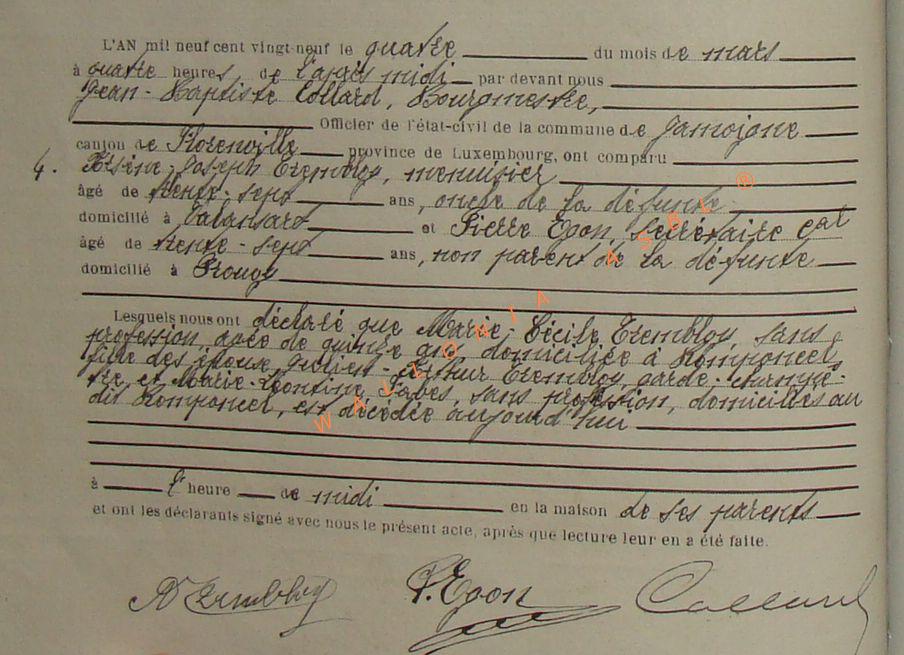 L'AN mil neuf cent vingt-neuf le quatre du mois de mars
à quatre heures, de l'après midi par devant nous
Jean-Baptiste Collard, Bourgmestre,
Officier de l'état-civil de la commune de Jamoigne
canton de Florenville province de Luxembourg, ont comparu
4. Joseph Trembloy, menuisier
âgé de trente-sept ans, oncle de la défunte
domicilié à Valansart et Pierre Egon, secrétaire cal
âgé de trente-sept ans, non parent de la défunte
domicilié à Prouvy
Lesquels nous ont déclaré que Marie-Cécile Trembloy, sans
profession, âgée de quinze ans, domiciliée à Romponcel,
fille des époux Arthur Trembloy, garde-champê-
tre et Marie-Léontine, sans profession, domiciliés au
dit Romponcel, est décédée aujourd'hui
à l'heure de midi en la maison de ses parents
et ont les déclarants signé avec nous le présent acte, après que lecture leur en a été faite.
Trembloy P. Egon Collard
WALLONIA ASBL ®